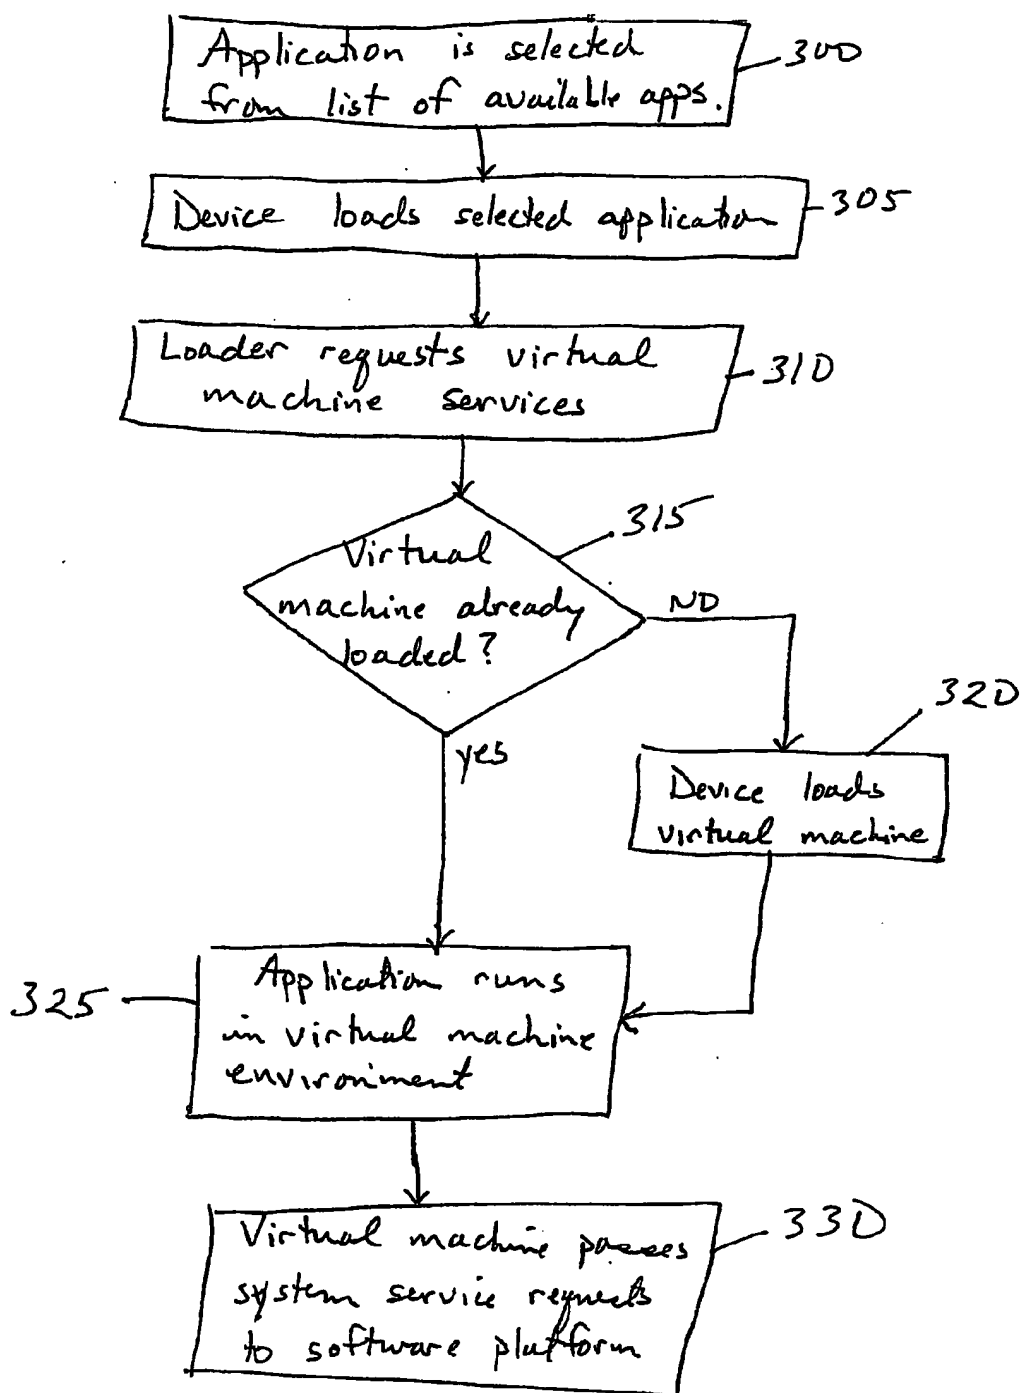 Application is selected
300
from list of available apps.
Device loads selected application
305
Loader requests virtual
310
machine services
315
Virtual
machine already
loaded?
NO
yes
320
Device loads
virtual machine
325
Application runs
in virtual machine
environment
330
Virtual machine passes
system service requests
to software platform